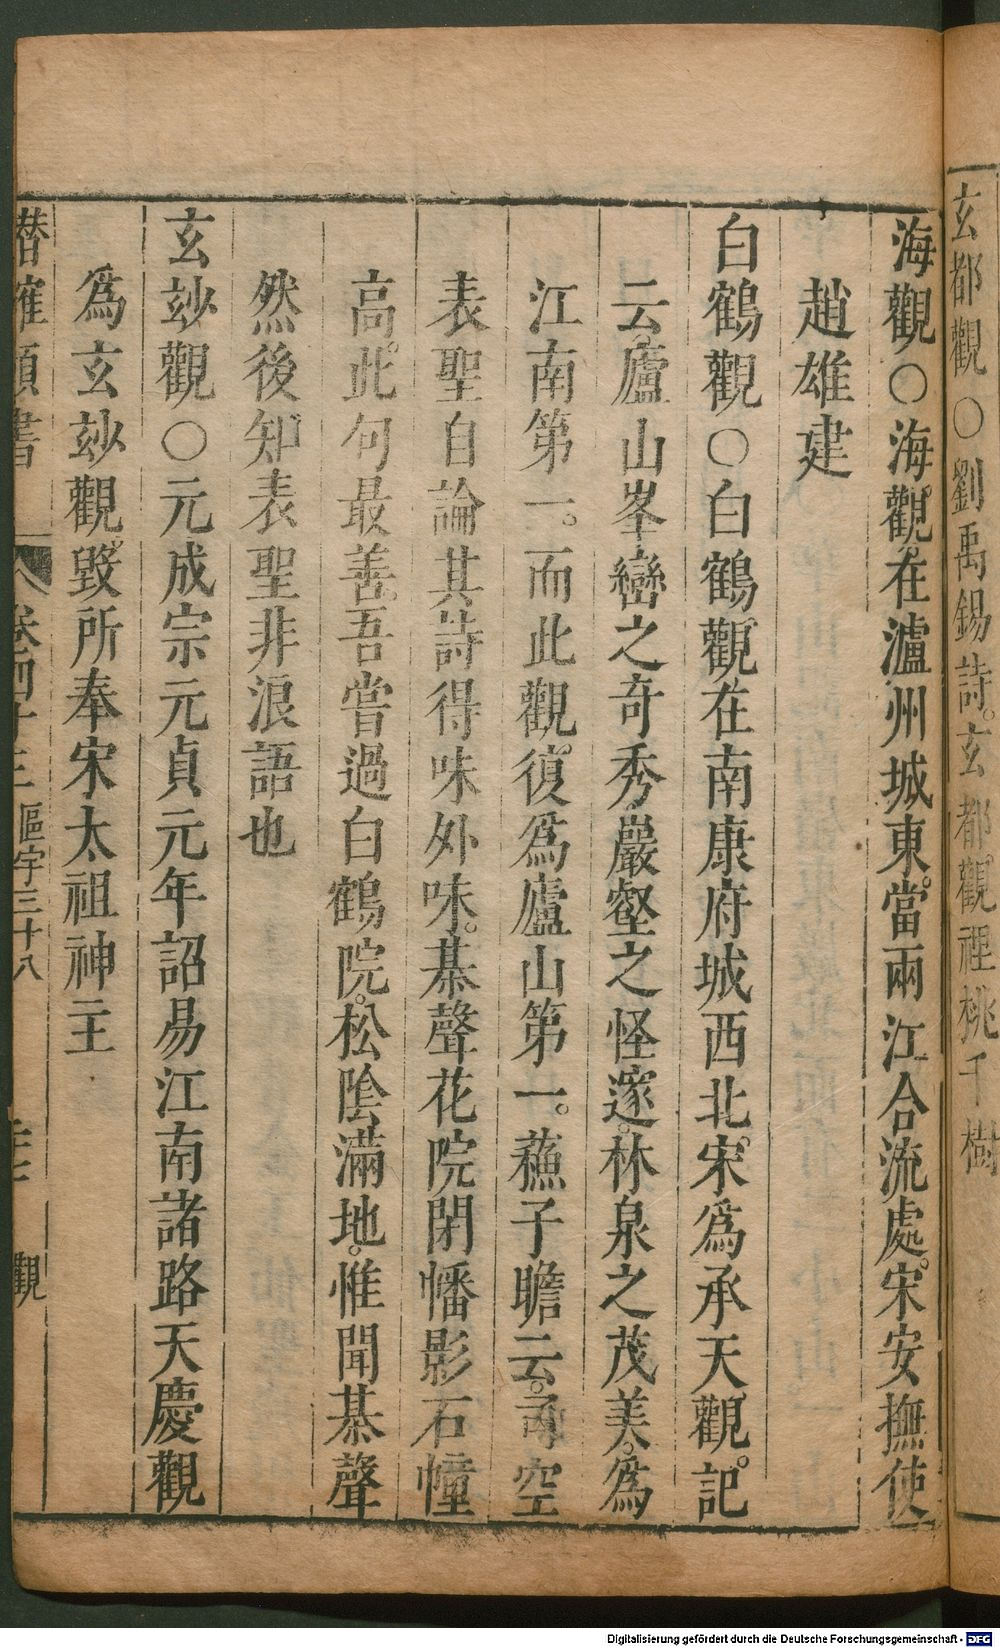 玄都觀○劉禹錫詩。玄都觀裡桃千樹
海觀○海觀在瀘州城東。當兩江合流處。宋安撫使
趙雄建
白鶴觀○白鶴觀在南康府城西北。宋爲承天觀。記
云。廬山峯巒之奇秀。巖壑之怪邃。林泉之茂美。爲
江南第一。而此觀。復爲廬山第一。蘓子瞻云。司空
表聖自論其詩得味外味。棊聲花院閉幡影石幢
高。此句最善。吾嘗過白鶴院。松陰滿地。惟聞棊聲
然後知表聖非浪語也
玄玅觀○元成宗元貞元年詔易江南諸路天慶觀
爲玄玅觀。毀所奉宋太祖神主
潛確類書 卷四十三 區宇三十八 觀
Digitalisierung gefördert durch die Deutsche Forschungsgemeinschaft - DFG